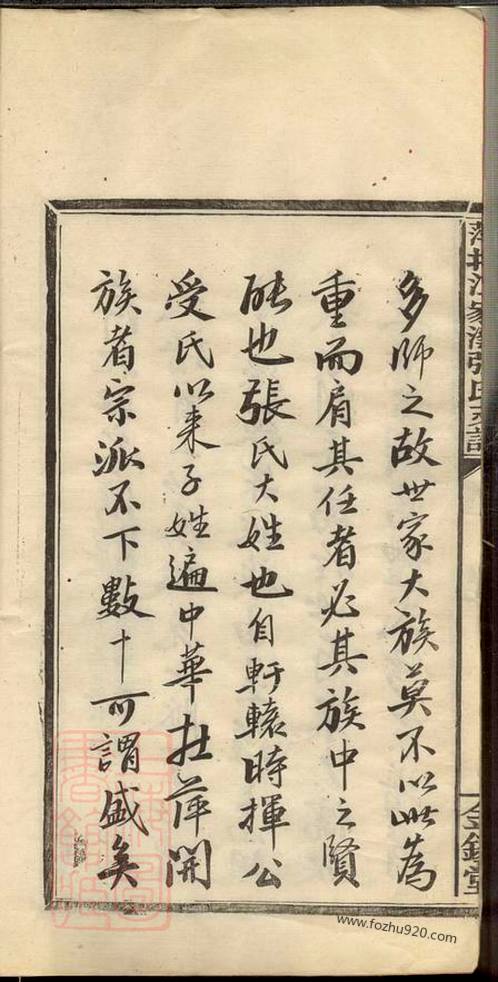 多師之故世家大族莫不以此為
重而肩其任者必其族中之賢
能也張氏大姓也自軒轅時揮公
受氏以来子姓遍中華在萍開
族者宗派不下數十可謂盛矣
張氏支譜
www.fozhu920.com